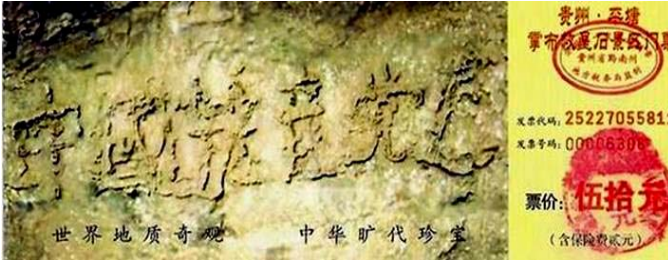 中國共产党亡
世界地质奇观 中华旷代珍宝
贵州·平塘
掌布救星石景区门票
贵州省黔南州
地方税务局监制
发票代码: 2522705581
发票号码: 00006306
票价: 伍拾元
(含保险费贰元)